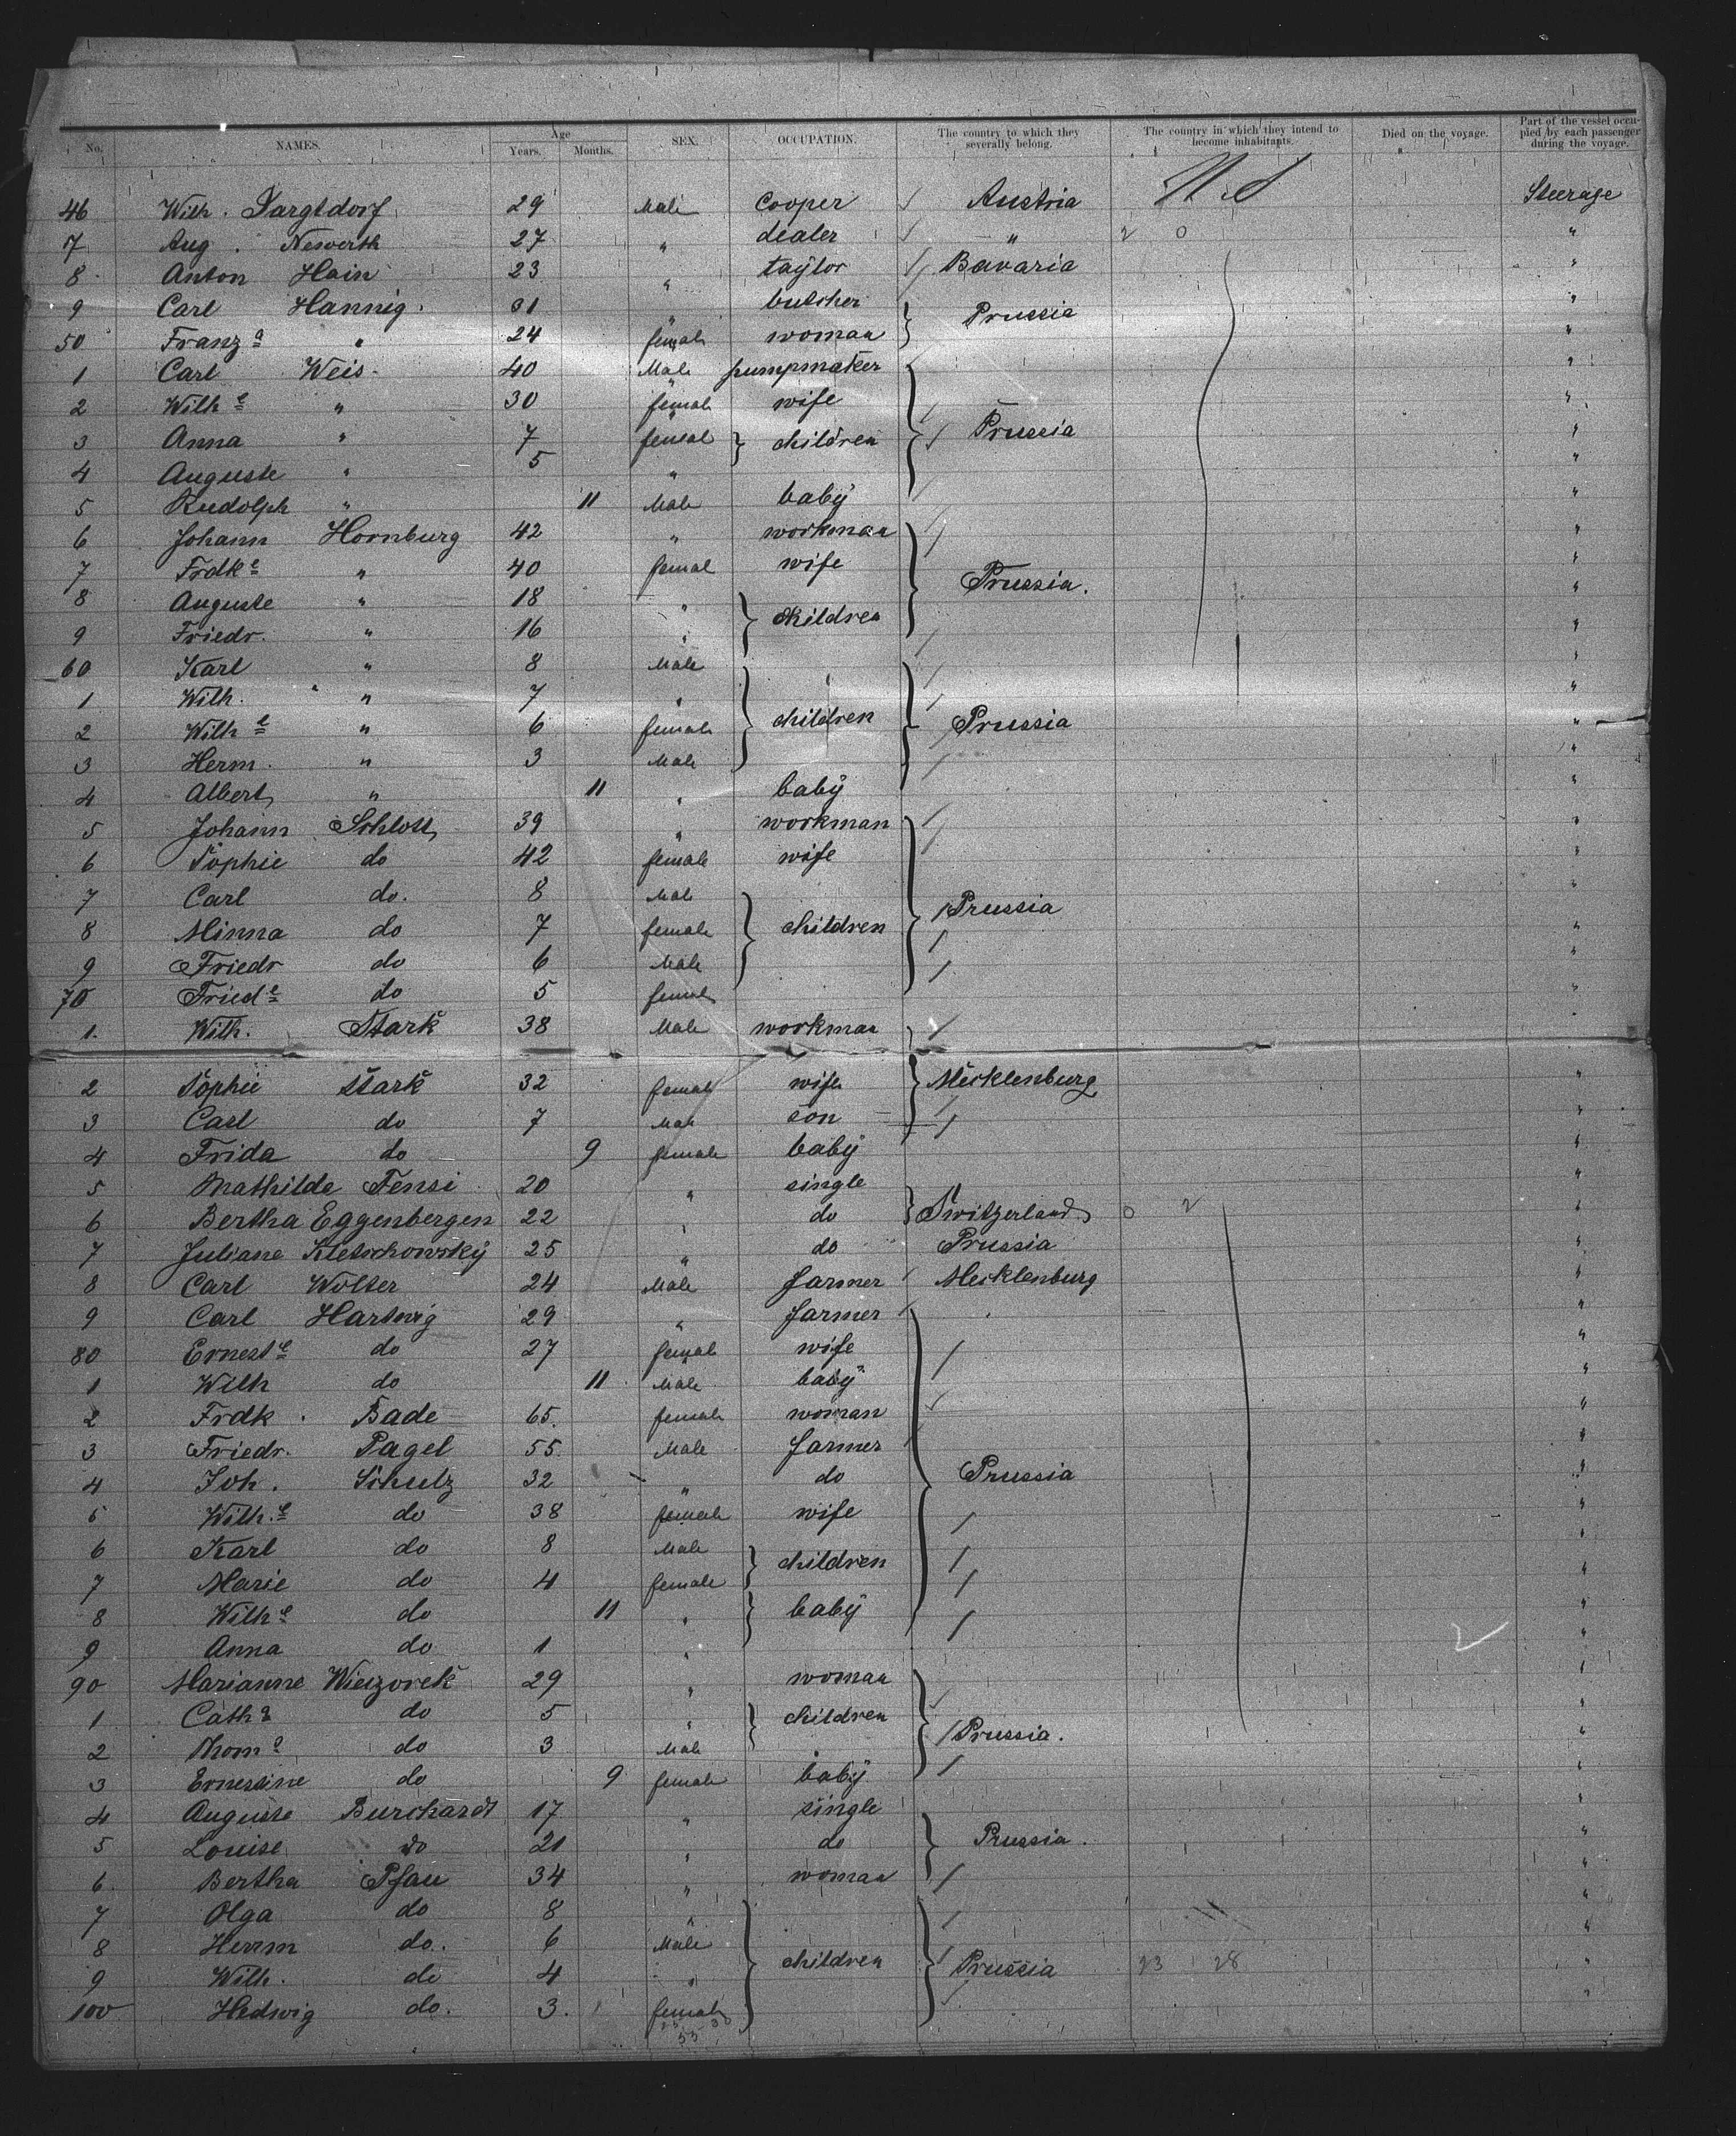 No. NAMES. Age Years. Months. SEX. OCCUPATION. The country to which they severally belong. The country in which they intend to become inhabitants. Died on the voyage. Part of the vessel occupied by each passenger during the voyage.
46 Wilh. 29 Male Cooper Austria U.S. Steerage
7 Aug. 27 " dealer " 2 0 "
8 Anton Hain 23 " taylor Bavaria "
9 Carl Hannig. 31 " butcher Prussia "
50 Franz a " 24 female woman "
1 Carl Weis 40 Male pumpmaker "
2 Wilh e " 30 female wife "
3 Anna " 7 female children Prussia "
4 Auguste " 5 " "
5 Rudolph " 11 Male baby "
6 Johann Hornburg 42 " workman "
7 Frdk e " 40 female wife "
8 Auguste " 18 " children Prussia. "
9 Friedr. " 16 " "
60 Karl " 8 Male "
1 Wilh. " 7 " "
2 Wilh e " 6 female children Prussia "
3 Herm. " 3 Male "
4 Albert " 11 " baby "
5 Johann Schlott 39 " workman "
6 Sophie do 42 female wife "
7 Carl do. 8 Male "
8 Minna do 7 female children Prussia "
9 Friedr do 6 Male "
70 Fried e do 5 female "
1. Wilh. Stark 38 Male workman "
2 Sophie Stark 32 female wife Mecklenburg "
3 Carl do 7 Male son "
4 Frida do 9 female baby "
5 Mathilde Fensi 20 " single "
6 Bertha Eggenbergen 22 " do Switzerland 0 2 "
7 Juliane Kletschowsky 25 " do Prussia "
8 Carl Wolter 24 Male farmer Mecklenburg "
9 Carl Hartwig 29 " farmer "
80 Ernest e do 27 female wife "
1 Wilh do 11 Male baby "
2 Frdk. Bade 65. female woman "
3 Friedr. Pagel 55. Male farmer "
4 Joh. Schulz 32 " do Prussia "
5 Wilh. e do 38 female wife "
6 Karl do 8 Male children "
7 Marie do 4 female "
8 Wilh e do 11 " baby "
9 Anna do 1 " "
90 Marianne Wieczorek 29 " woman "
1 Cath a do 5 " children "
2 Thom s do 3 Male Prussia. "
3 Ernestine do 9 female baby
4 Auguste Burchardt 17 " single "
5 Louise do 21 " do Prussia. "
6. Bertha Pfau 34 " woman "
7 Olga do 8 " "
8 Herrm do. 6 Male "
9 Wilh. do 4 " children Prussia 23 28 "
100 Hedwig do. 3. female "
55